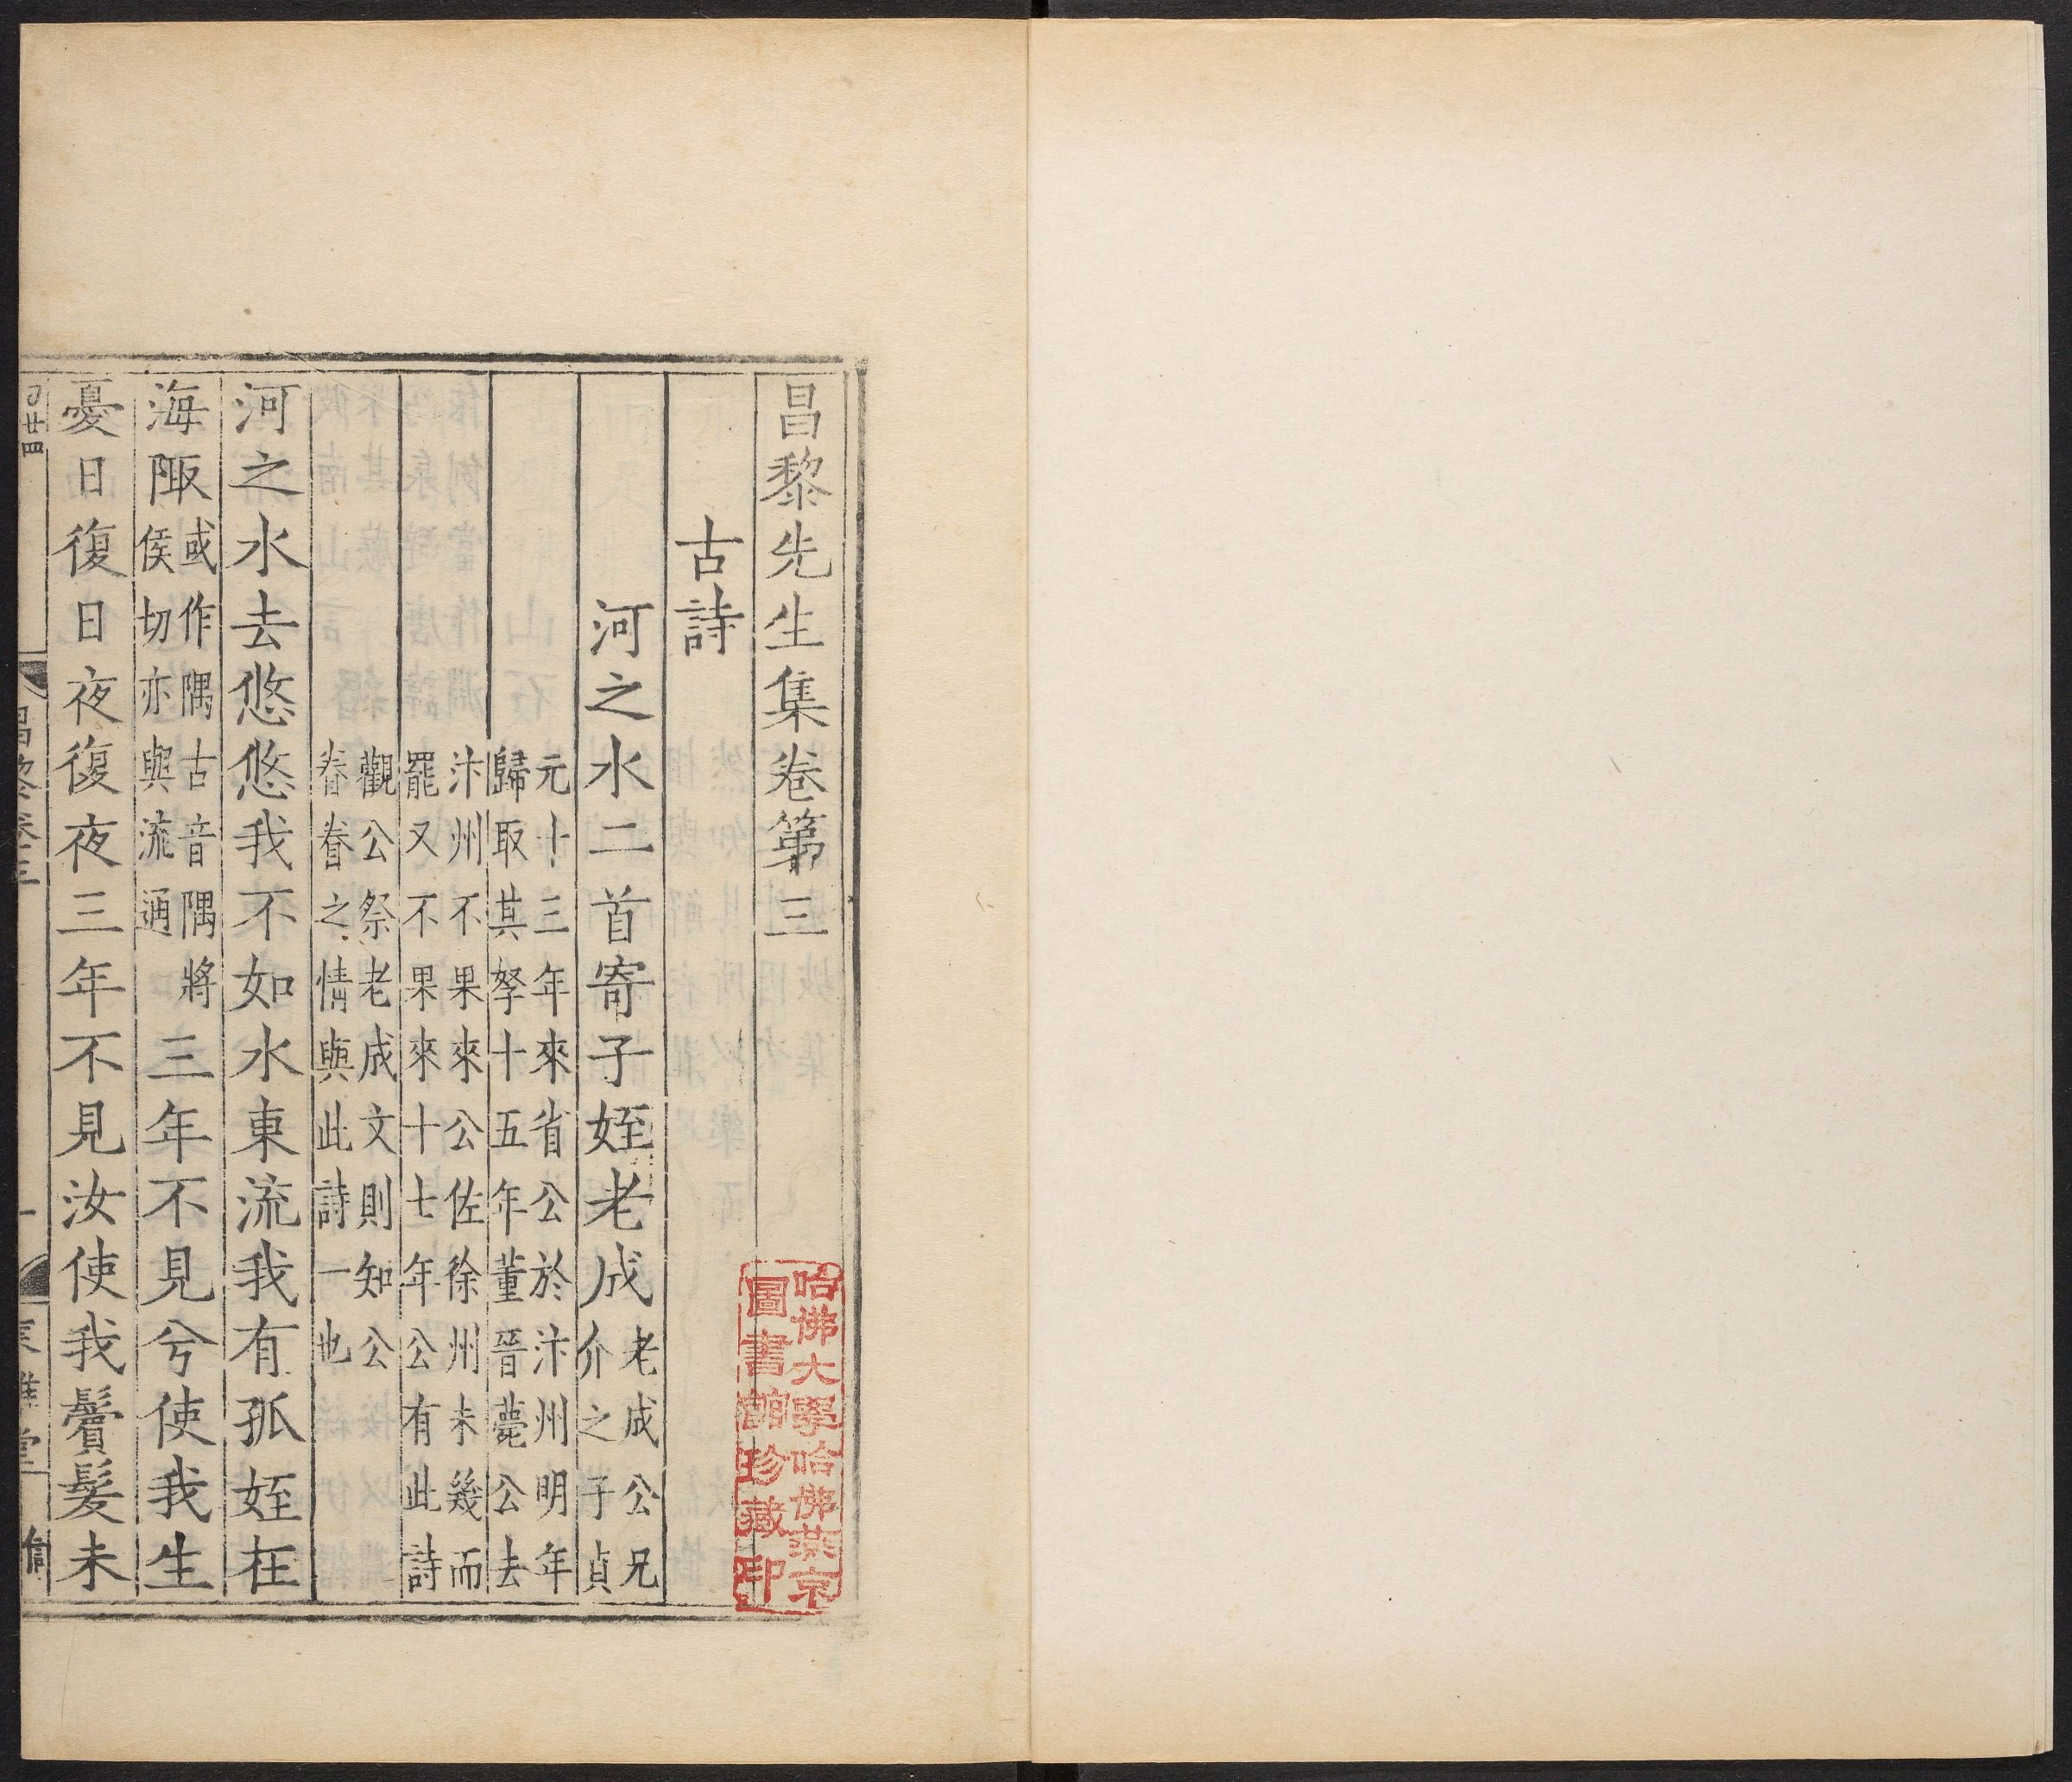 昌黎先生集卷第三
古詩
河之水二首寄子姪老成
老成公兄
介之子貞
元十三年來省公於汴州明年
歸取其孥十五年董晉薨公去
汴州不果來公佐徐州未幾而
罷又不果來十七年公有此詩
觀公祭老成文則知公
眷眷之情與此詩一也
河之水去悠悠我不如水東流我有孤姪在
海陬
或作隅古音隅將
侯切亦與流通
三年不見兮使我生
憂日復日夜復夜三年不見汝使我鬢髮未
昌黎卷三
一
雅堂
哈佛大學哈佛燕京
圖書館珍藏印